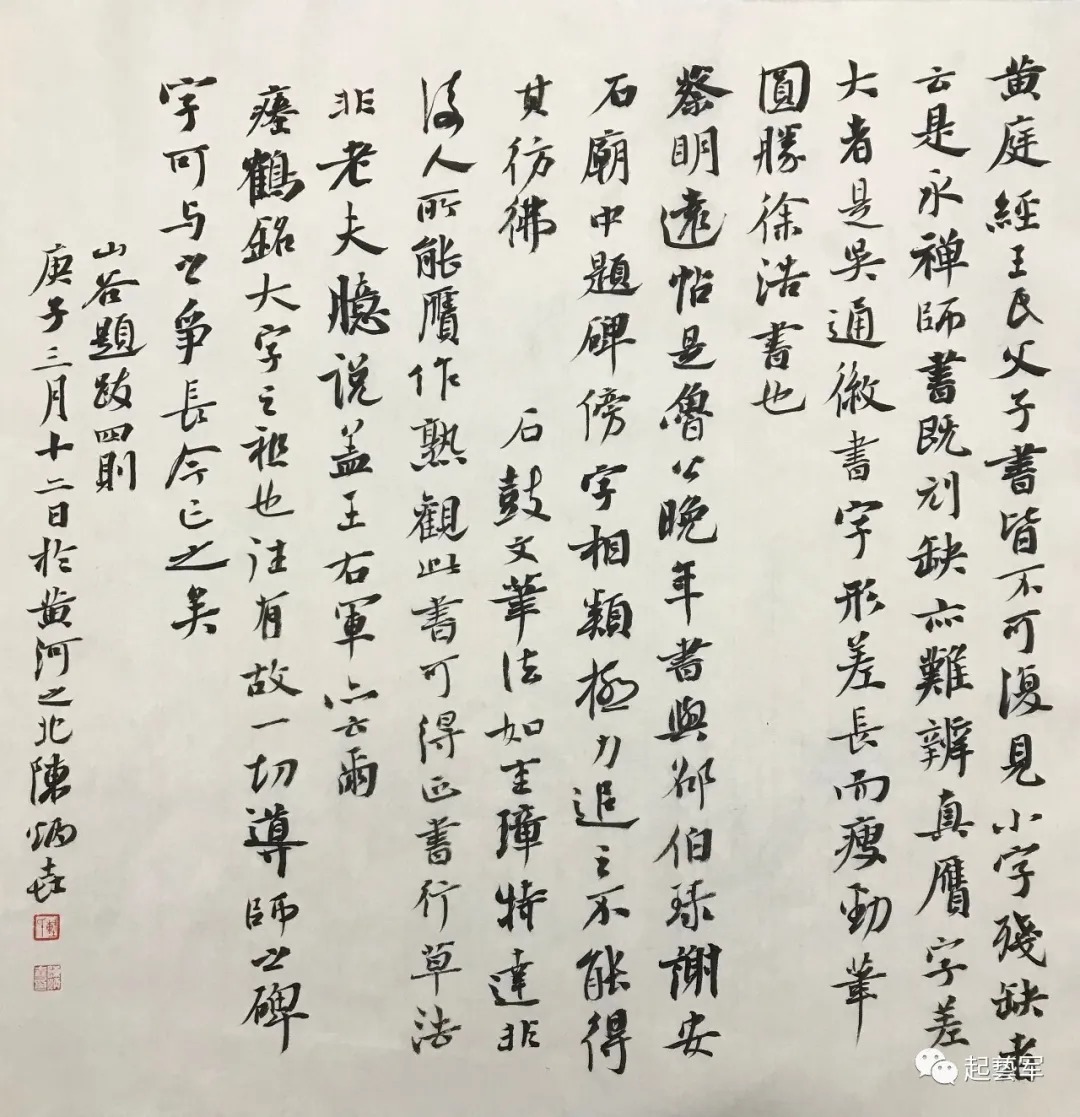 黄庭經王氏父子書皆不可復見小字殘缺者
云是永禅師書既刓缺亦難辨真贋字差
大者是吳通微書字形差長而瘦勁筆
圓勝徐浩書也
蔡明遠帖是魯公晚年書與邵伯埭謝安
石廟中題碑傍字相類極力追之不能得
其彷彿 石鼓文筆法如圭璋特達非
後人所能贋作熟觀此書可得正書行草法
非老夫臆说盖王右軍亦云爾
瘞鶴銘大字之祖也往有故一切導師之碑
字可与之爭長今亡之矣
山谷題跋四則
庚子三月十二日於黄河之北陳炳
起藝军